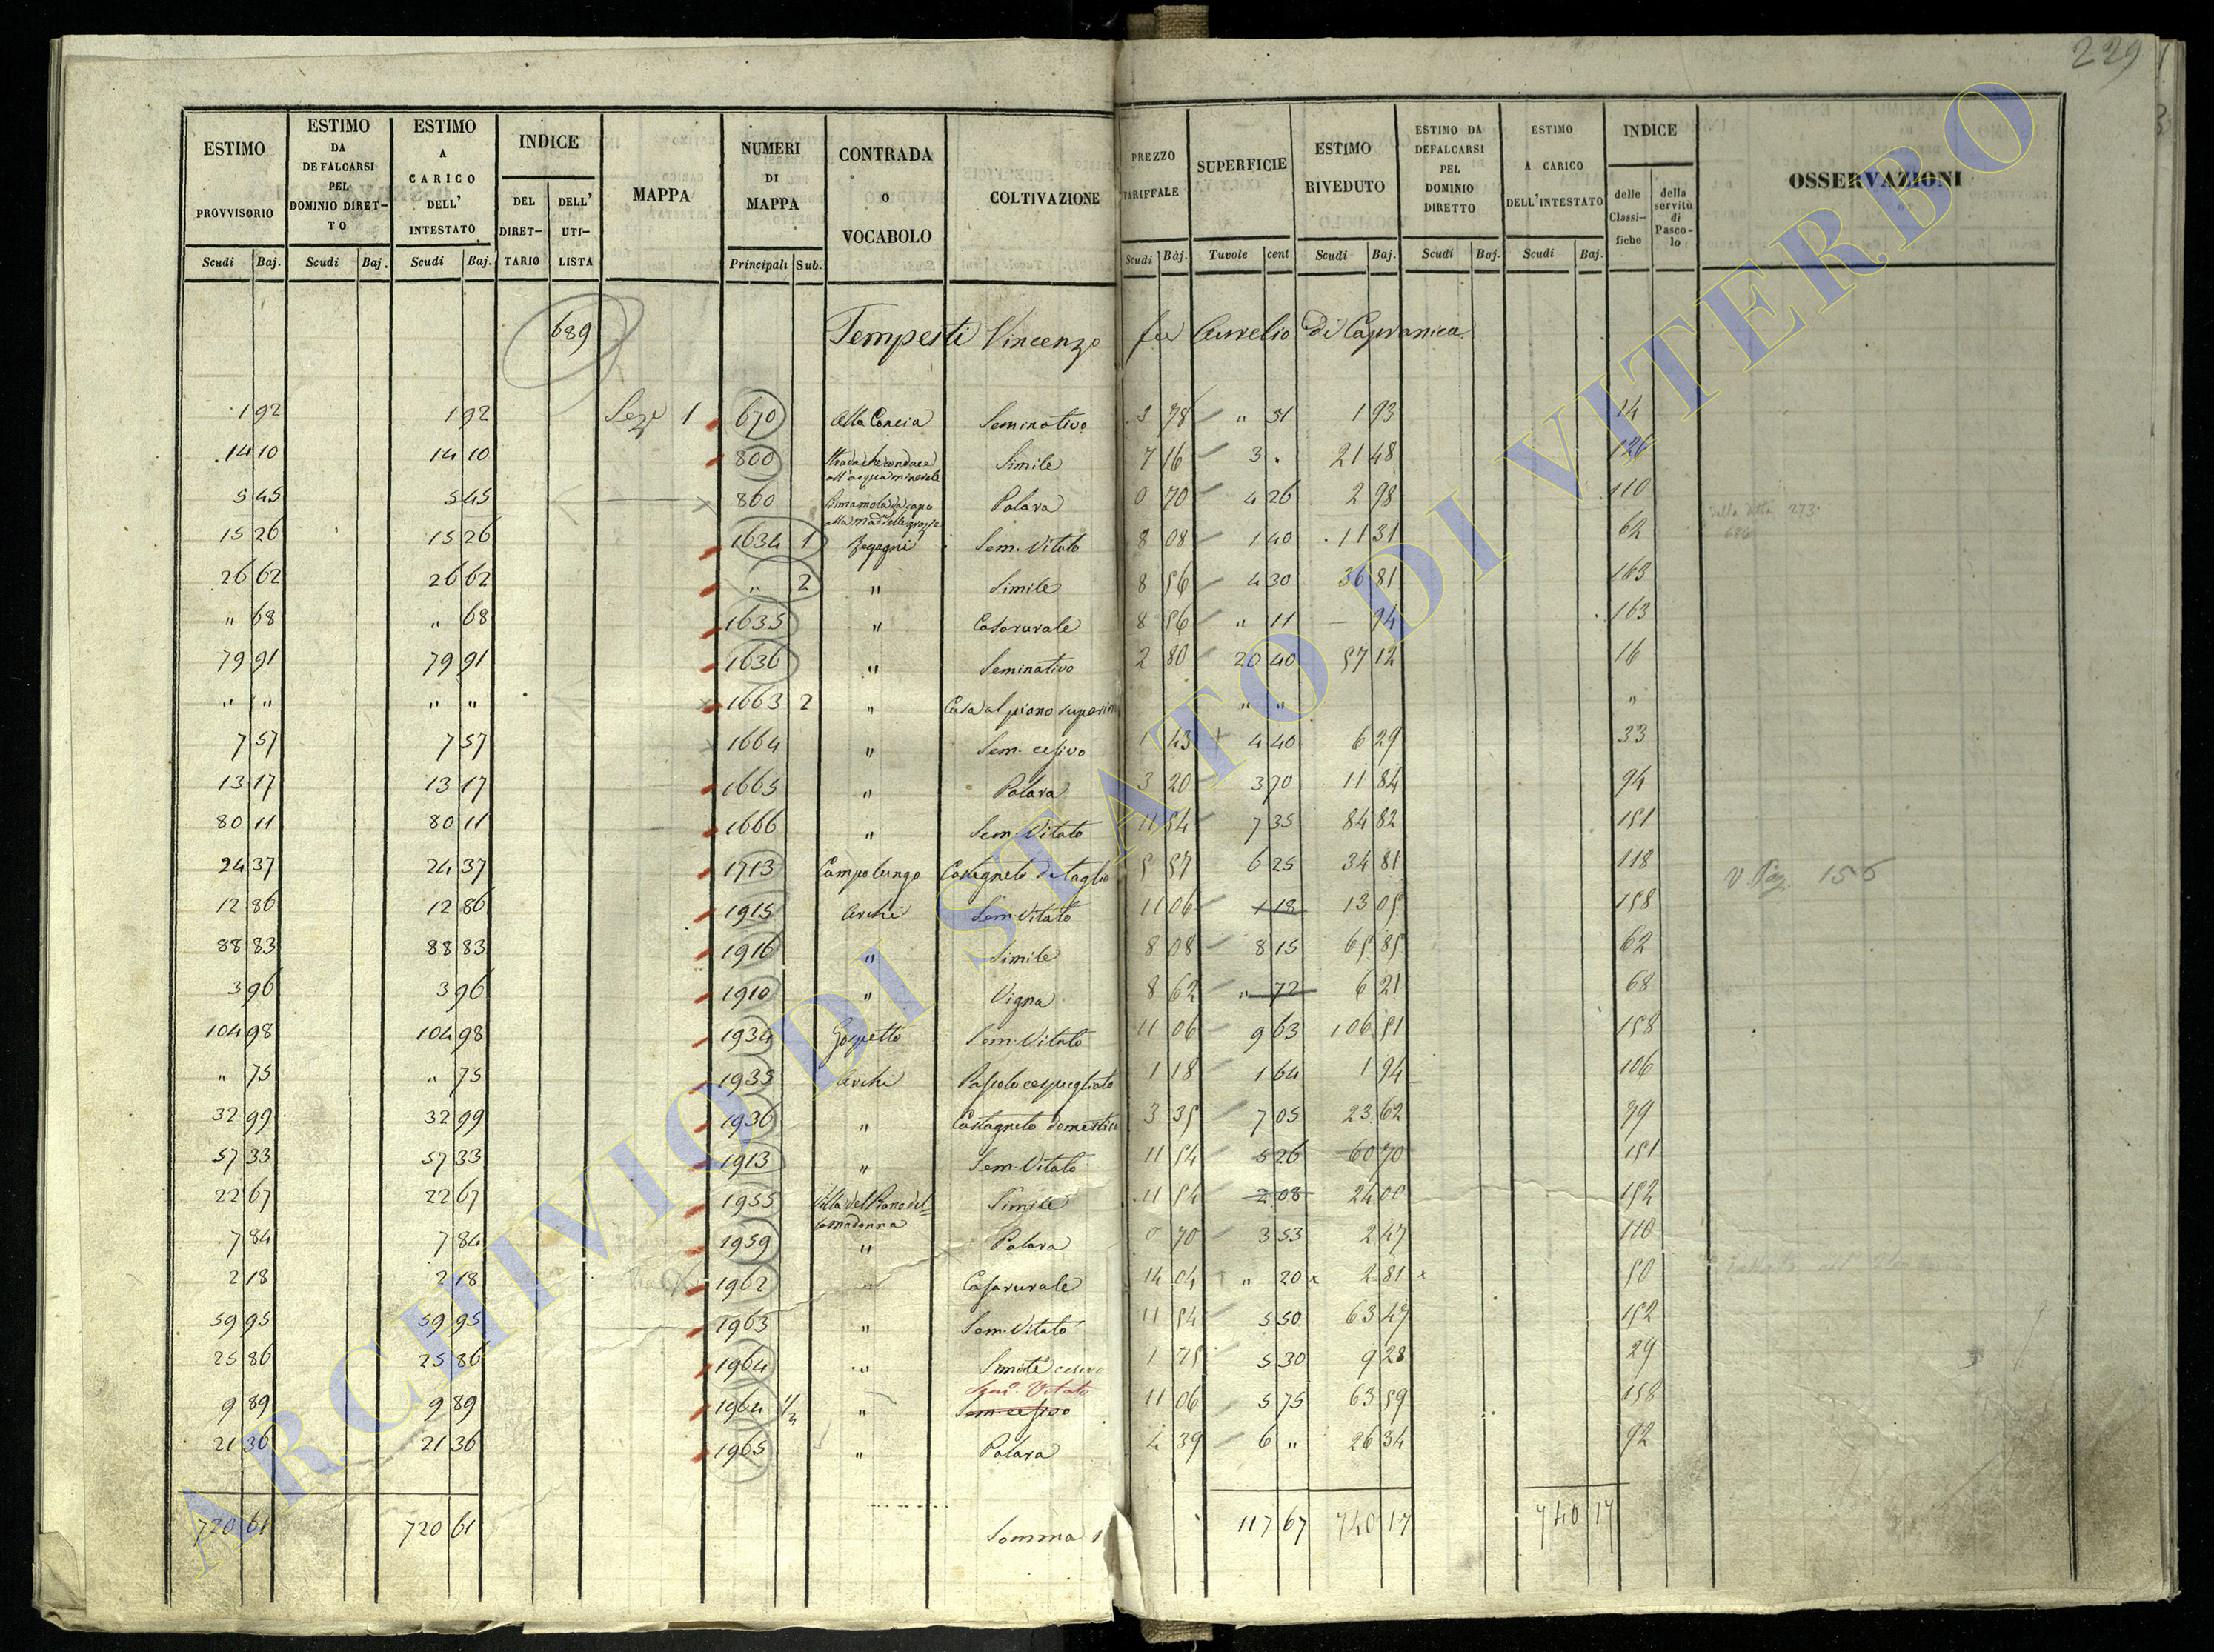 229
ESTIMO PROVVISORIO | ESTIMO DA DEFALCARSI PEL DOMINIO DIRETTO | ESTIMO A CARICO DELL' INTESTATO | INDICE DEL DIRETTARIO | DELL' UTILISTA | MAPPA | NUMERI DI MAPPA | CONTRADA O VOCABOLO | COLTIVAZIONE | PREZZO TARIFFALE | SUPERFICIE | ESTIMO RIVEDUTO | ESTIMO DA DEFALCARSI PEL DOMINIO DIRETTO | ESTIMO A CARICO DELL'INTESTATO | INDICE delle Classifiche | della servitù di Pascolo | OSSERVAZIONI
Scudi | Baj. | Scudi | Baj. | Scudi | Baj. | Principali | Sub. | Scudi | Baj. | Tavole | cent | Scudi | Baj. | Scudi | Baj. | Scudi | Baj.
689 Tempesti Vincenzo fu Aurelio di Capranica
1 92 | 1 92 | Sez.e 1 | 670 | Alla Concia | Seminativo | 3 78 | " 51 | 1 93 | 14
14 10 | 14 10 | 800 | Strada che conduce all'acqua minerale | Simile | 7 16 | 3 . | 21 48 | 126
5 45 | 5 45 | 860 | alla mad. delle grazie | Polara | 0 70 | 4 26 | 2 98 | 110
15 26 | 15 26 | 1634 1 | Sem. Vitato | 8 08 | 1 40 | 11 31 | 62
26 62 | 26 62 | " 2 | " | Simile | 8 56 | 4 30 | 36 81 | 163
" 68 | " 68 | 1635 | " | Casa rurale | 8 56 | " 11 | 94 | 163
79 91 | 79 91 | 1636 | " | Seminativo | 2 80 | 20 40 | 57 12 | 16
" " | " " | 1663 2 | " | Casa al piano superiore | " " | "
7 57 | 7 57 | 1664 | " | Sem. cesivo | 1 43 | 4 40 | 6 29 | 33
13 17 | 13 17 | 1665 | " | Polara | 3 20 | 3 70 | 11 84 | 94
80 11 | 80 11 | 1666 | " | Sem. Vitato | 11 54 | 7 35 | 84 82 | 151
24 37 | 24 37 | 1713 | Campo lungo | Castagneto da taglio | 5 57 | 6 25 | 34 81 | 118 | V. Pag. 156
12 86 | 12 86 | 1915 | Archi | Sem. Vitato | 11 06 | 1 18 | 13 05 | 158
88 83 | 88 83 | 1916 | " | Simile | 8 08 | 8 15 | 65 85 | 62
3 96 | 3 96 | 1910 | " | Vigna | 8 62 | " 72 | 6 21 | 68
104 98 | 104 98 | 1934 | Sem. Vitato | 11 06 | 9 63 | 106 51 | 158
" 75 | " 75 | 1935 | Archi | Pascolo cespugliato | 1 18 | 1 64 | 1 94 | 106
32 99 | 32 99 | 1936 | " | Castagneto domestico | 3 35 | 7 05 | 23 62 | 99
57 33 | 57 33 | 1913 | " | Sem. Vitato | 11 54 | 5 26 | 60 70 | 151
22 67 | 22 67 | 1955 | Villa del Piano della madonna | Simile | 11 54 | 2 08 | 24 00 | 152
7 84 | 7 84 | 1959 | " | Polara | 0 70 | 3 53 | 2 47 | 110
2 18 | 2 18 | 1962 | " | Casa rurale | 14 04 | " 20 | 2 81 | 50
59 95 | 59 95 | 1963 | " | Sem. Vitato | 11 54 | 5 50 | 63 47 | 152
25 86 | 25 86 | 1964 | " | Simile cesivo | 1 75 | 5 30 | 9 28 | 29
Sem. Vitato
9 89 | 9 89 | 1964 1/2 | " | Sem. cesivo | 11 06 | 5 75 | 63 59 | 158
21 36 | 21 36 | 1965 | " | Polara | 4 39 | 6 " | 26 34 | 92
720 61 | 720 61 | Somma | 117 67 | 740 17 | 740 17
ARCHIVIO DI STATO DI VITERBO